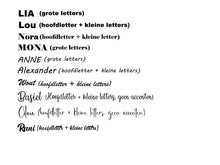 LIA (grote letters)
Lou (hoofdletter + kleine letters)
Nora (hoofdletter + kleine letter)
MONA (grote letters)
ANNE (grote letters)
Alexander (hoofdletter + kleine letters)
Wout (hoofdletter + kleine letters)
Basiel (Hoofdletter + kleine letters, geen accenten)
(hoofdletter + kleine letters, geen accenten)
Rani (hoofdletter + kleine letters)